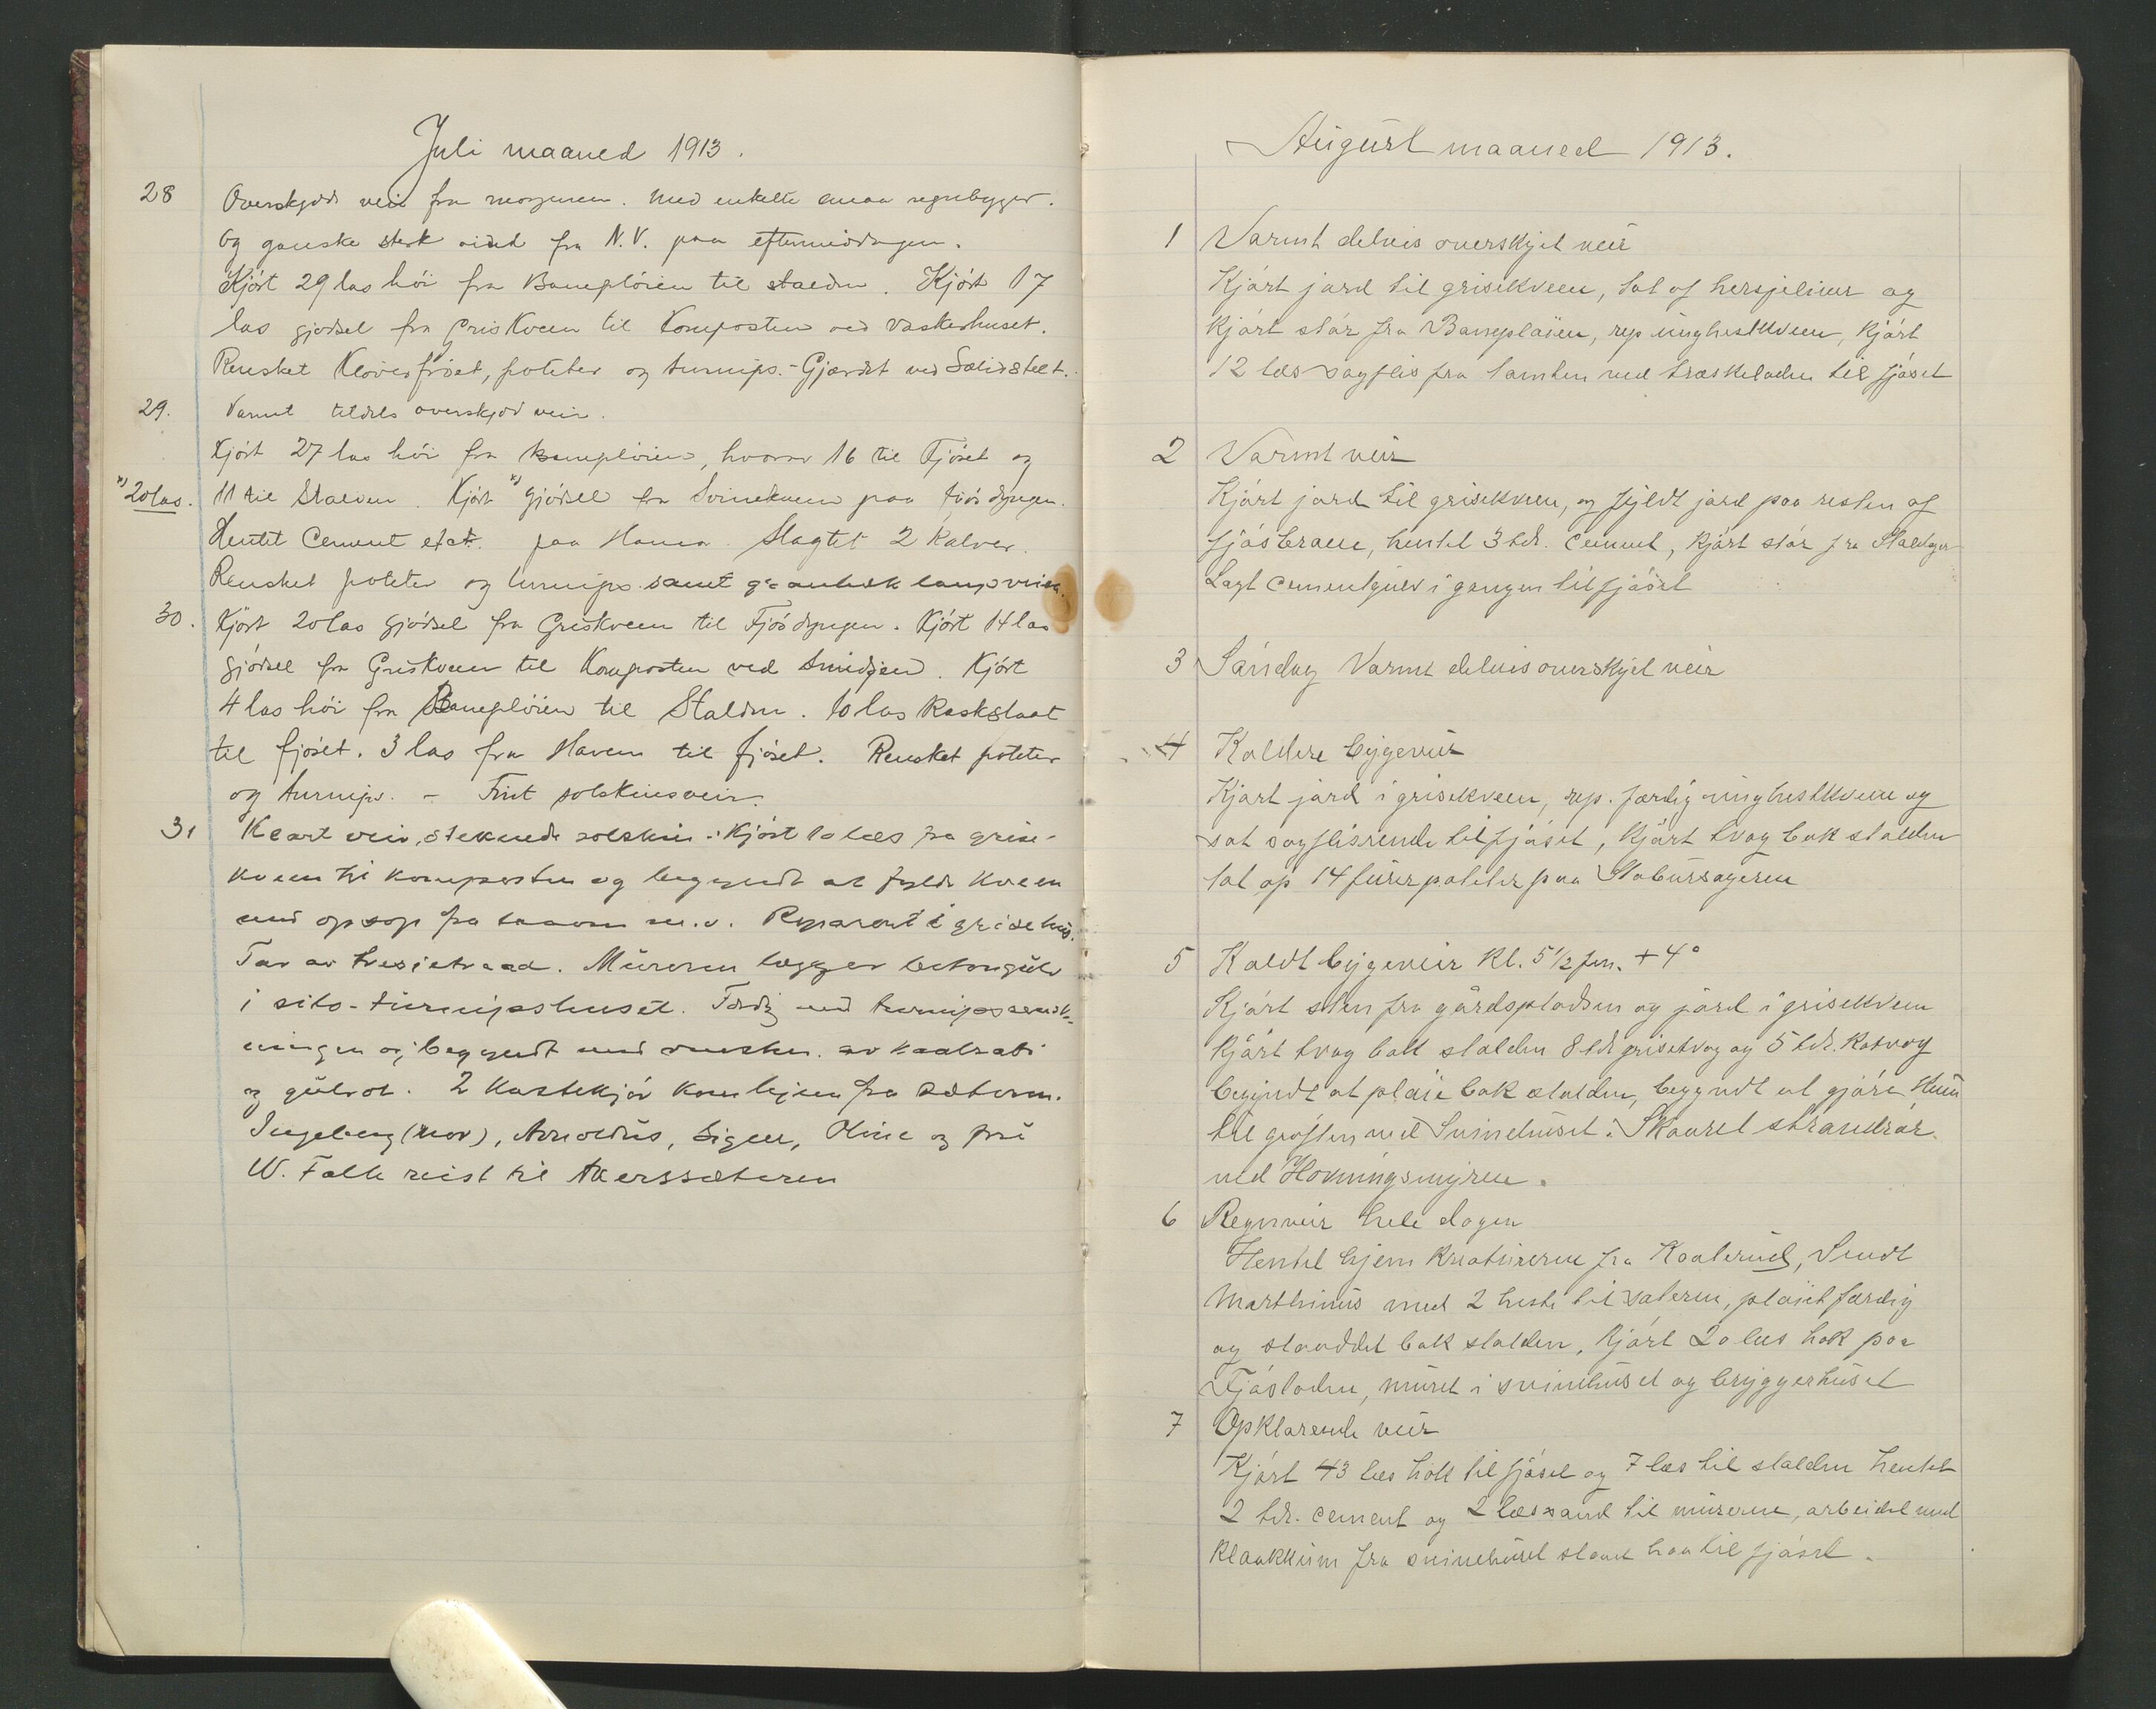 Juli maaned 1913.
28 Overskyet veir fra morgenen. med enkelte smaa regnbyger.
og ganske sterk vind fra N.V. paa eftermiddagen.
Kjört 29 las höi fra Bamepløien til stalden. Kjört 17
las gjødsel fra GrisKveen til Komposten ved Vaskerhuset.
Rensket Kløverfrøet, poteter og turnips. - Gjærdet ved
29. Varmt tildels overskyd veir.
Kjört 27 las höi fra Bamepløien, hvorav 16 til Fjöset og
x) 20 las. 11 til Stalden. Kjört x) gjödsel fra Svinekveen paa Fjösdyngen.
Hentet Cement etct. paa Hamar. Slagtet 2 Kalver.
Rensket poteter og turnips samt
30. Kjört 20 las gjödsel fra Griskveen til Fjösdyngen. Kjört 14 las
gjödsel fra Griskveen til Komposten ved Smidjen. Kjört
4 las höi fra Bamepløien til Stalden. 10 las Raskslaat
til fjöset. 3 las fra Haven til fjöset. Rensket poteter
og turnips. - Fint solskinsveir.
31 Klart veir, stekende solskin. Kjört 10 læs fra grise-
kveen til komposten og begyndt at fylde Kveen
med opsop fra laaven m.v. Reparert i grisehus.
Tar av hesjetraad. Müreren lægger betongülv
i silo-türnipshuset. Færdig med turnipsrensk-
ningen og begyndt med rensken av kaalrabi
og gülrot. 2 Kastekjör kom hjem fra sæteren.
Ingeborg (Mor), Arnoldüs, Signe, Oline og frü
W. Falk reist til Akerssæteren
Augüst maaned 1913.
1 Varmt delvis overskjet veir
Kjørt jord til grisekveen, tat af hersjeliner og
Kjørt stør fra Bamepløien, rep ünghestkveen, Kjørt
12 læs sagflis fra tomten ved træskeladen til fjøset
2 Varmt veir
Kjørt jord til grisekveen, og fyldt jord paa resten af
fjøsbroen, hentet 3 tdr. Cement, Kjørt stør fra
Lagt cementgulv i gangen til fjøset
3 Søndag Varmt delvis overskyet veir
4 Koldere bygeveir
Kjørt jord i grisekveen, rep. færdig ünghestkveen og
sat sagflisrende til fjøset, Kjørt tvag bak stalden
tat op 14 fürer poteter paa Stabürsageren
5 Koldt bygeveir Kl. 5 1/2 fm. + 4°
Kjørt sten fra gårdspladsen og jord i grisekveen
Kjørt tvag bak stalden 8 tdr grisetvag og 5 tdr.
begyndt at pløie bak stalden, begyndt at gjøre
til grøften ved Svinehüset. Skaaret strandrør
ved Hovningsmyren.
6 Regnveir hele dagen
Hentet hjem Kreatürerne fra Kaalerüd, Sendt
Marthinüs med 2 heste til sæteren, pløiet færdig
og sladdet bak stalden, Kjørt 20 læs hok paa
Fjøsladen, müret i svinehüset og bryggerhüset
7 Opklarende veir
Kjørt 43 læs hok til fjøset og 7 læs til stalden hentet
2 tdr. cement og 2 læs sand til mürerne, arbeidet med
Kloakküm fra svinehüset slaat haa til fjøset.